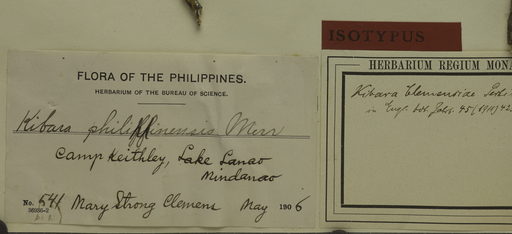 ISOTYPUS
FLORA OF THE PHILIPPINES.
HERBARIUM OF THE BUREAU OF SCIENCE.
Kibara philippinensis Merr
Camp Keithley, Lake Lanao
Mindanao
No. 641 Mary Strong Clemens May 1906
36086-2
HERBARIUM REGIUM MONA
Kibara Clemensiae Perk
in Engl. bot. Jahrb. 45 (1911) 42